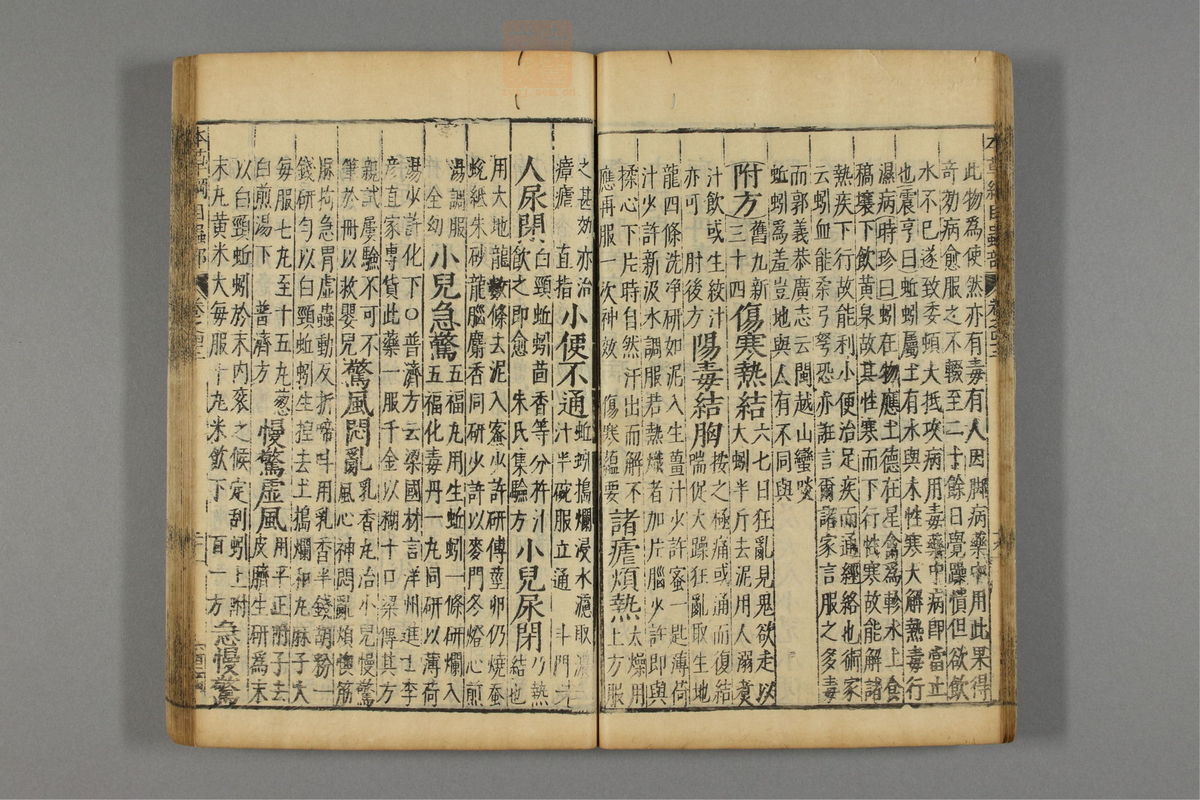 此物為使然亦有毒有人因脚病藥中用此果得
奇効病愈服之不輟至二十餘日覺躁憒但欲飲
水不已遂致委頓大抵攻病用毒藥中病卽當止
也震亨曰蚯蚓屬土有水與木性寒大解熱毒行
濕病時珍曰蚓在物應土德在星禽為軫水上食
稿壤下飲黃泉故其性寒而下行性寒故能解諸
熱疾下行故能利小便治足疾而通經絡也術家
云蚓血能柰弓弩恐亦誑言爾諸家言服之多毒
而郭義恭廣志云閩越山蠻啖
蚯蚓為羞豈地與人有不同與
附方舊九新三十四傷寒熱結六七日狂亂見鬼欲走以大蚓半斤去泥用人溺煑
汁飲或生絞汁亦可 肘後方陽毒結胸按之極痛或通而復結喘促大躁狂亂取生地
龍四條洗淨研如泥入生薑汁少許蜜一匙薄荷
汁少許新汲水調服若熱熾者加片腦少許卽與
揉心下片時自然汗出而解不
應再服一次神效 傷寒蘊要諸瘧煩熱太燥用上方服
之甚効亦治瘴瘧 直指小便不通蚯蚓搗爛浸水濾取濃汁半碗服立通 斗門
人尿閉白頸蚯蚓茴香等分杵汁飲之卽愈 朱氏集驗方小兒尿閉乃熱結也
用大地龍數條去泥入蜜少許研傅莖卵仍燒蚕
蛻紙朱砂龍腦麝香同研少許以麥門冬燈心煎
湯調服 全幼小兒急驚五福化毒丹一丸同研以薄荷湯少許化下○普濟方云梁國材言洋州進士李
彥直家專貨此藥一服千金以糊十口梁得其方
親試屢驗不可不筆於冊以救嬰兒驚風悶亂乳香丸治小兒慢驚風心神悶亂煩懊筋
脉拘急胃虛蟲動反折啼叫用乳香半錢胡粉一
錢研勻以白頸蚯蚓生揑去土搗爛和丸麻子大
每服七丸至十五丸葱白煎湯下 普濟方慢驚虛風用平正附子去皮臍生研為末
以白頸蚯蚓於末內衮之候定刮蚓上附
末丸黃米大每服十丸米飲下 百一方急慢驚